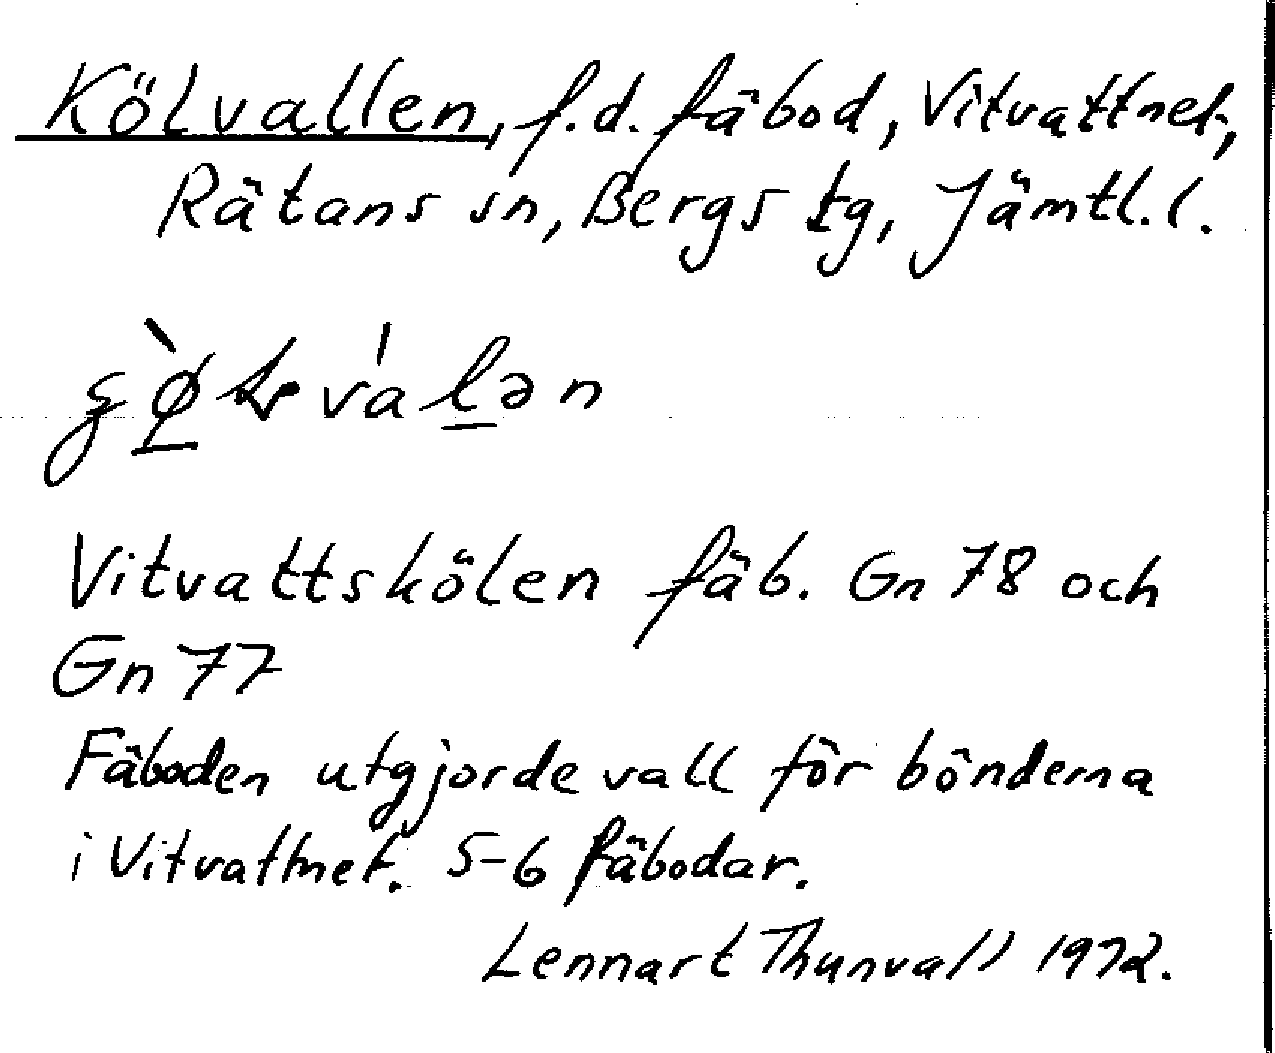 Kölvallen, f.d. fäbod, Vitvattnet,
Rätans sn, Bergs tg, Jämtl. l.
Vitvattskölen fäb. Gn 78 och
Gn 77
Fäboden utgjorde vall för bönderna
i Vitvattnet. 5-6 fäbodar.
Lennart Thunvall 1972.